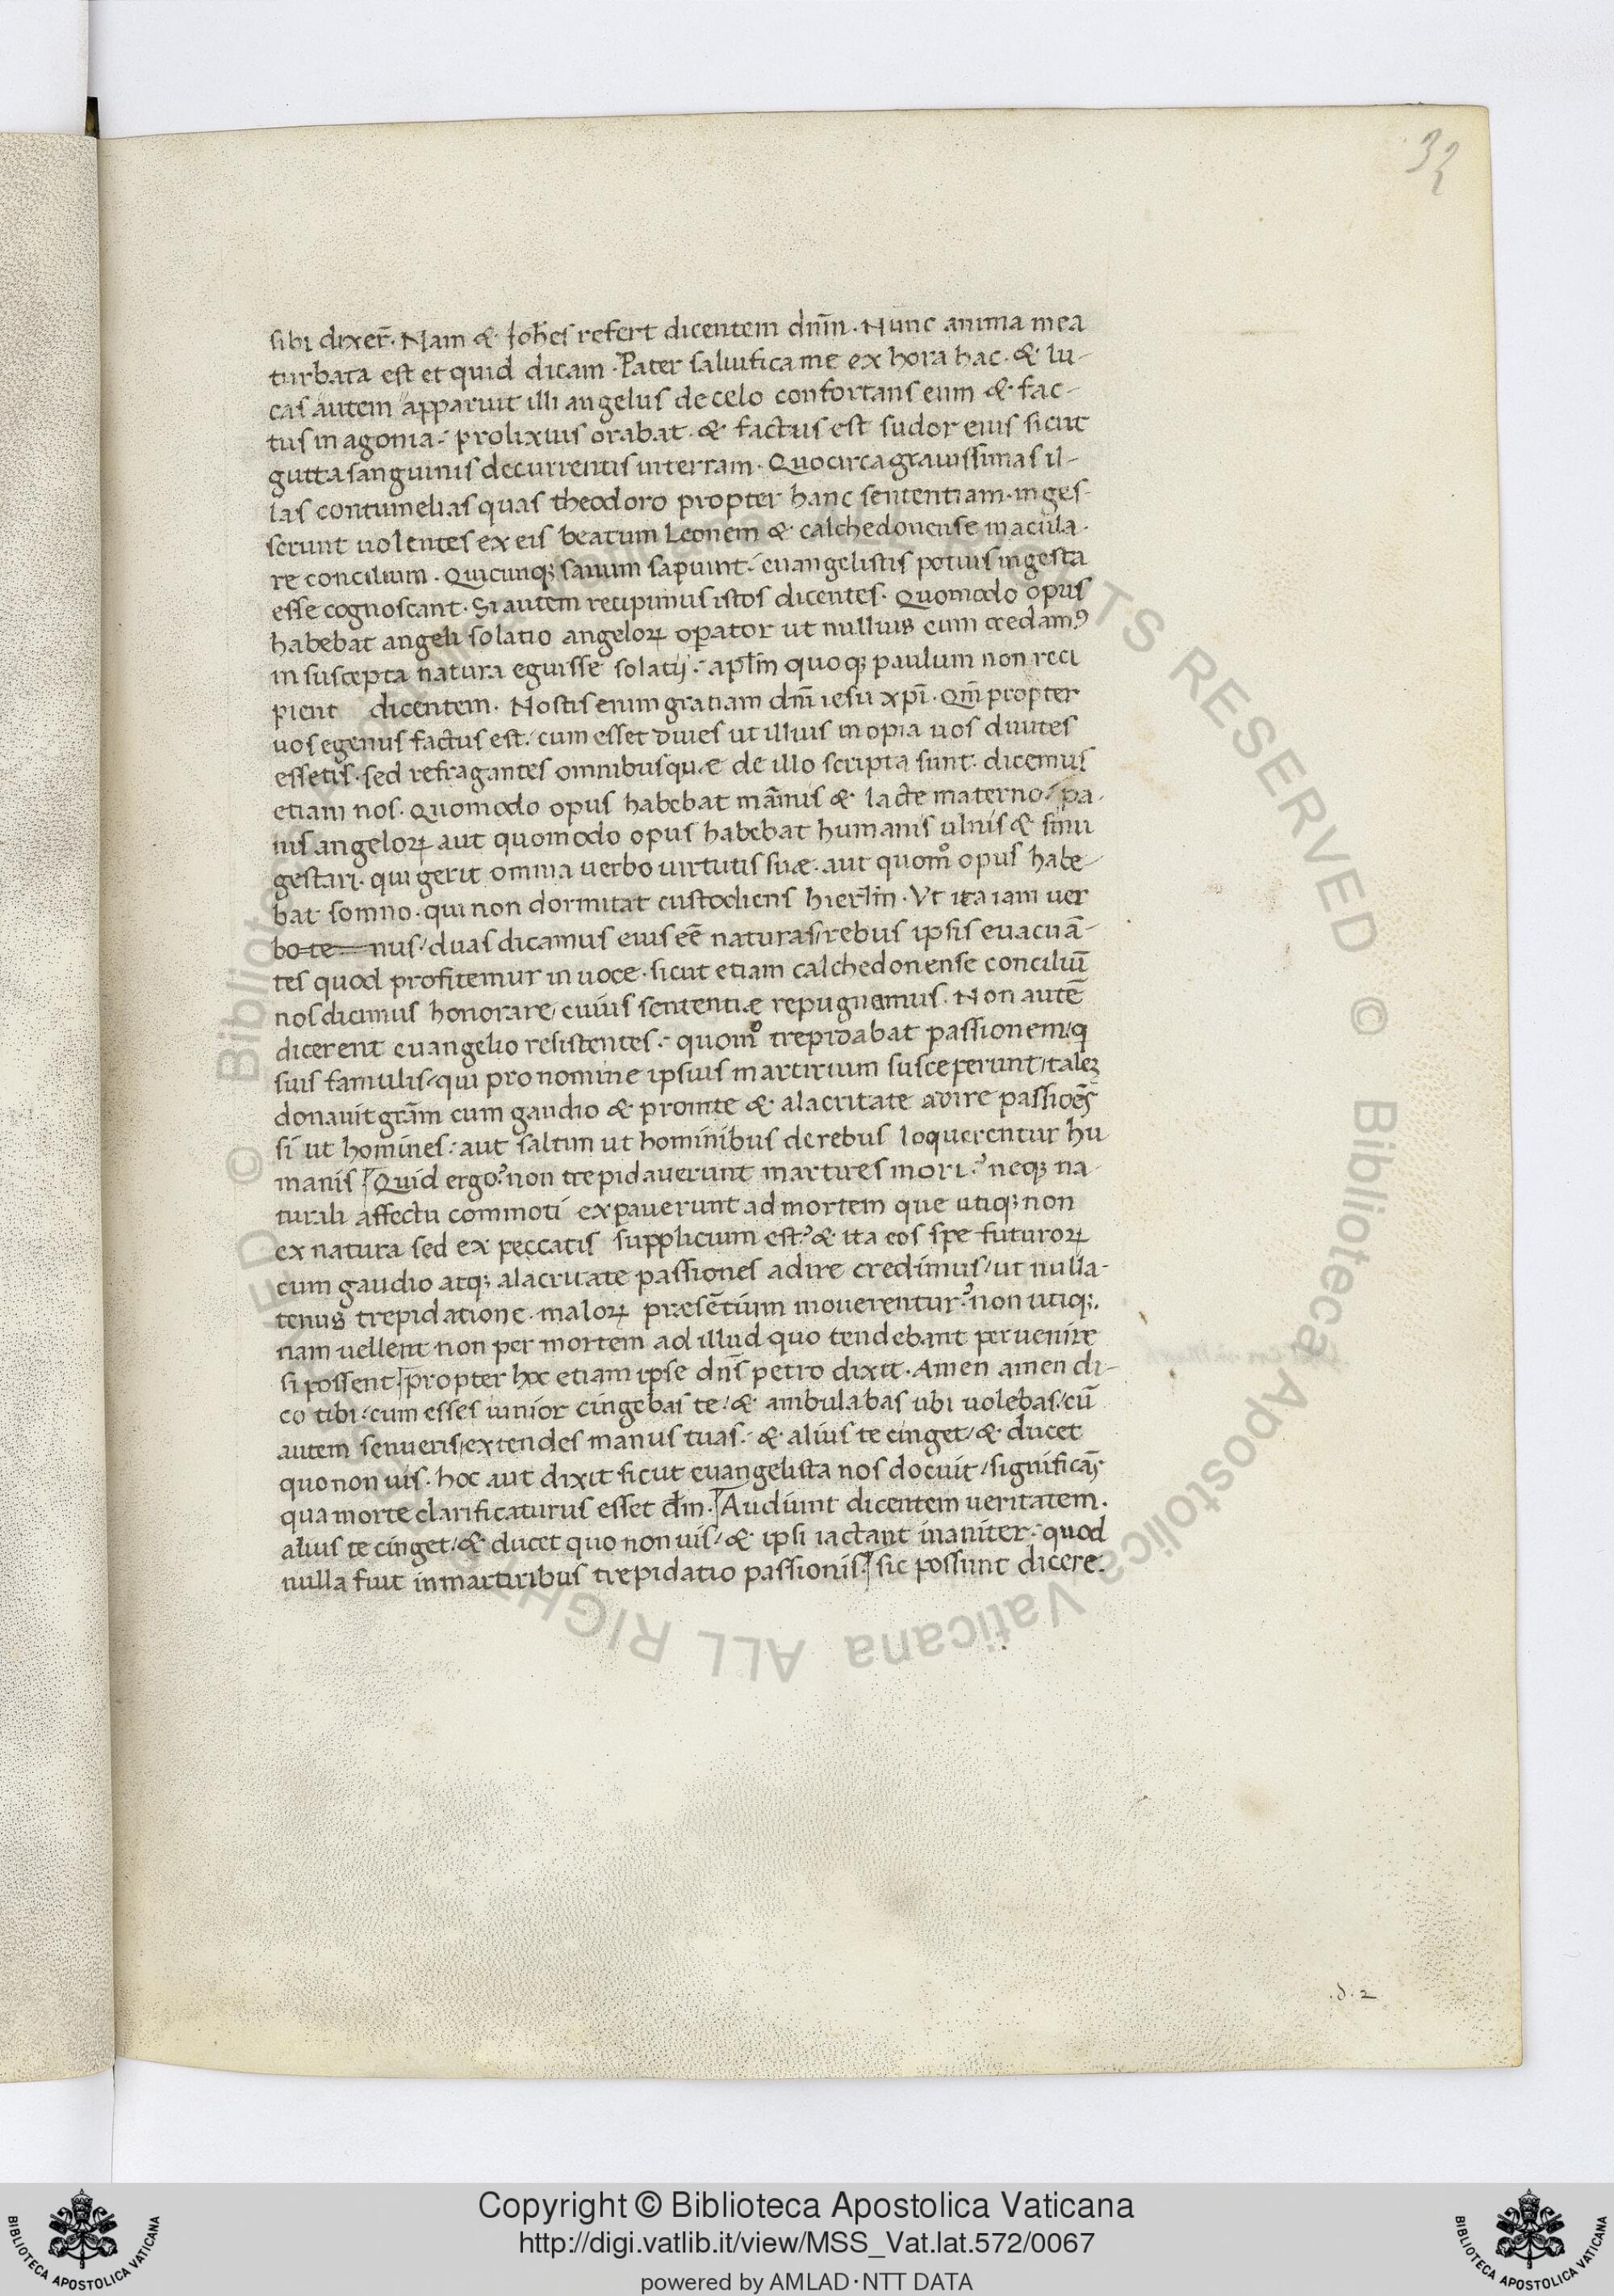 32
sibi dixer̄. Nam & Joh̄es refert dicentem dn̄m. Nunc anima mea
turbata est et quid dicam. Pater saluifica me ex hora hac. & lu-
cas autem apparuit illi angelus de celo confortans eum & fac-
tus in agonia: prolixius orabat. & factus est sudor eius sicut
gutta sanguinis decurrentis in terram. Quocirca grauissimas il-
las contumelias quas theodoro propter hanc sententiam inges-
serunt uolentes ex eis beatum Leonem & calchedonense macula-
re concilium. Quicunq; sanum sapiunt: euangelistis potius ingesta
esse cognoscant. Si autem recipimus istos dicentes. Quomodo opus
habebat angeli solatio angeloꝝ opator ut nullius eum credamꝰ
in suscepta natura eguisse solatij: apl̄m quoq; paulum non reci
pient dicentem. Nostis enim gratiam dn̄i iesu xp̄i. Qm̄ propter
uos egenus factus est: cum esset diues ut illius inopia uos diuites
essetis. sed refragantes omnibus quæ de illo scripta sunt. dicemus
etiam nos. Quomodo opus habebat mām̄is & lacte materno: pa-
nis angeloꝝ aut quomodo opus habebat humanis ulnis & sinu
gestari. qui gerit omnia uerbo uirtutis suæ. aut quomº opus habe-
bat somno. qui non dormitat custodiens hierl̄m. Vt ita iam uer
bo te nus: duas dicamus eius eē naturas/ rebus ipsis euacuā-
tes quod profitemur in uoce. sicut etiam calchedonense conciliū
nos dicimus honorare/ cuius sententiæ repugnamus. Non autē
dicerent euangelio resistentes: quomº trepidabat passionem/ q
suis famulis/ qui pro nomine ipsius martirium susceperunt/ taleꝫ
donauit grām cum gaudio & promte & alacritate adire passiōes
si ut homines: aut saltim ut hominibus de rebus loquerentur hu
manis Quid ergo? non trepidauerunt martires mori? neq; na-
turali affectu commoti expauerunt ad mortem que utiq; non
ex natura sed ex peccatis supplicium est? & ita eos spe futuroꝝ
cum gaudio atq; alacritate passiones adire credimus/ ut nulla-
tenus trepidatione maloꝝ præsētium mouerentur? non utiq;.
nam uellent non per mortem ad illud quo tendebant peruenire
si possent. propter hoc etiam ipse dn̄s petro dixit. Amen amen di-
co tibi: cum esses iunior cingebas te/ & ambulabas ubi uolebas/ cū
autem senueris/ extendes manus tuas: & alius te cinget/ & ducet
quo non uis. hoc aut dixit sicut euangelista nos docuit/ significās
qua morte clarificaturus esset dm̄. Audiunt dicentem ueritatem.
alius te cinget/ & ducet quo non uis/ & ipsi iactant inaniter: quod
nulla fuit in martiribus trepidatio passionis. sic possunt dicere.
.d.2
Copyright © Biblioteca Apostolica Vaticana
http://digi.vatlib.it/view/MSS_Vat.lat.572/0067
powered by AMLAD·NTT DATA